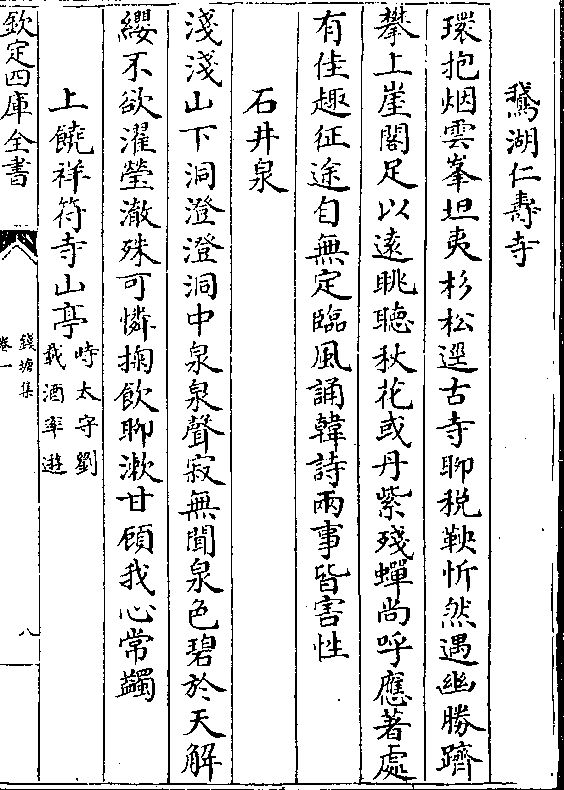 鵞湖仁壽寺
環抱烟雲峯坦夷杉松逕古寺聊税鞅忻然遇幽勝躋
攀上崖閣足以遠眺聽秋花或丹紫殘蟬尚呼應著處
有佳趣征途自無定臨風誦韓詩兩事皆害性
石井泉
淺淺山下洞澄澄洞中泉泉聲寂無聞泉色碧於天解
纓不欲濯瑩澈殊可憐掬飲聊漱甘顧我心常蠲
上饒祥符寺山亭
時太守劉
載酒率遊
欽定四庫全書
錢塘集
卷一
八